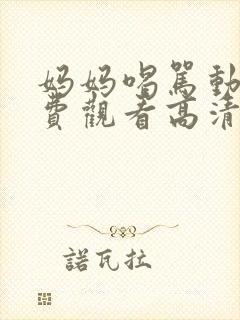 妈妈喝罵動
費觀看高清
諾瓦拉